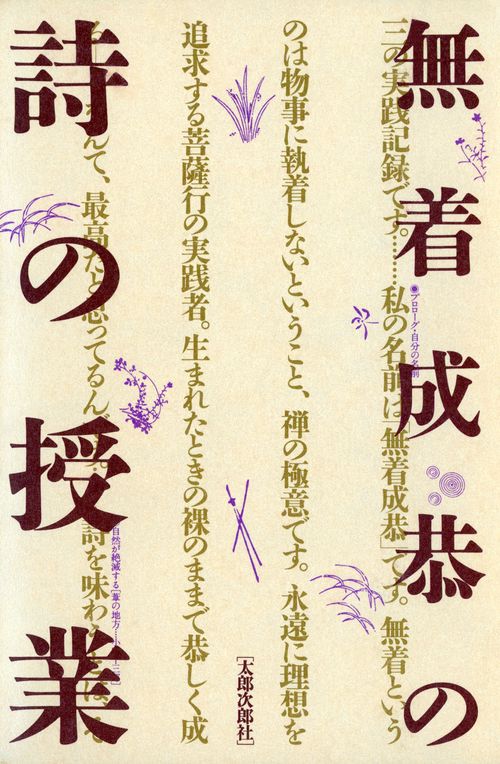 無着成恭の
詩の授業
三の実践記録です。………私の名前は「無着成恭」です。無着という
のは物事に執着しないということ、禅の極意です。永遠に理想を
追求する菩薩行の実践者。生まれたときの裸のままで恭しく成
んて、最高だと思ってるんです。詩を味わ
●プロローグ・自分の名前
自然が絶滅する
[太郎次郎社]